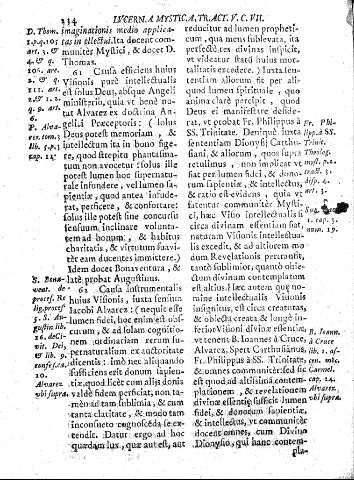 314 LVCERNA MYSTICA, TRACT. V. C. VII.
D. Thom.
1.p.q.105
art. 3.
4. & q.
106. art.
2. & q.
111. art.
2. & q.
9. a.
6.
P. Alva-
rez tom. 3
lib. 5.p.3
cap. 12.
imaginationis medio applica-
tas intellectui. Ita docent com-
muniter Mystici, & docet D.
Thomas.
61 Causa efficiens huius
Visionis purè intellectualis
est solus Deus, absque Angeli
ministerio, quia vt benè no-
tat Alvarez ex doctrina An-
gelici Præceptoris: solus
Deus potest memoriam, &
intellectum ita in bono fige-
re, quod strepitu phantasma-
tum non avocetur: solus ille
potest lumen hoc superna-
turale infundere, vel lumen sa-
pientiæ, quod antea infude-
rat, perficere, & confortare:
solus ille potest sine concursu
sensuum, inclinare volunta-
tem ad bonum, & habitus
charitatis, & virtutum eam
ità ducentes immittere.
Idem docet Bonaventura, &
latè probat Augustinus.
S. Bona-
vent. de
process. Re
lig. process
5. S. Au-
gustin lib.
16. de Ci-
vit. Dei,
& lib. 9.
confess. c.
10.
Alvarez
vbi supra.
62 Causa instrumentalis
huius Visionis, iuxta sensum
Iacobi Alvarez: (nequit esse
lumen fidei, hoc enim est obs-
curum, & ad solam cognitio-
nem ordinariam rerum su-
pernaturalium ex auctoritate
dicentis: imò nec aliquando
sufficiens erit donum sapien-
tiæ, quod licèt cum aliis donis
valdè fidem perficiat, non ta-
mèn ad tam sublimia, & cum
tanta claritate, & modo tam
inconsueto cognoscenda se ex-
tendit. Datur ergo ad hoc
quædam lux, quæ aut est, aut
reducitur ad lumen propheti-
cum, qua mens sublevata, ita
perfectè res divinas inspicit,
vt videatur statù huius mor-
talitatis excedere.) Iuxta sen-
tentiam aliorum fit per ali-
quod lumen spirituale, quo
anima clarè percipit, quod
Deus ei manifestare deside-
rat, vt probat Fr. Philippus à
SS. Trinitate. Deniquè iuxta
sententiam Dionysij Carthu-
siani, & aliorum, quos supra
retulimus, non implicat vt
fiat per lumen fidei, & donum
sapientiæ, & intellectus,
& ratio est evidens, quia vt
fatentur communitèr Mysti-
ci, hæc Visio intellectualis si
circa divinam essentiam sit,
naturam Visionis intellectua-
lis excedit, & ad altiorem mo-
dum Revelationis pertransit,
tantò sublimior, quantò obie-
ctum divinum contemplatum
est altius. Hæc ergo quæ no-
mine intellectualis Visionis
insignitur, est circa creaturas,
& obiecta creata, & longè in-
ferior Visioni divinæ essentiæ,
vt tenent B. Ioannes à Cruce,
Alvarez, Spert Carthusianus,
Fr. Philippus à SS. Trinitate,
& omnes communitèr: sed sic
est, quod ad altiorem contem-
plationem, & revelationem
divinæ essentiæ sufficit lumen
fidei, & donorum sapientiæ,
& intellectus, vt communitèr
docent omnes, cum Divino
Dionysio, qui hanc contem-
pla-
Fr. Phi-
lipp. à SS.
Theolog.
myst. p. 2.
tract. 3.
disp. 4.
art. 3.
cap. 3.
num. 19.
B. Ioann.
à Cruce
Carmel.
cap. 24.
Alvarez.
vbi supra.